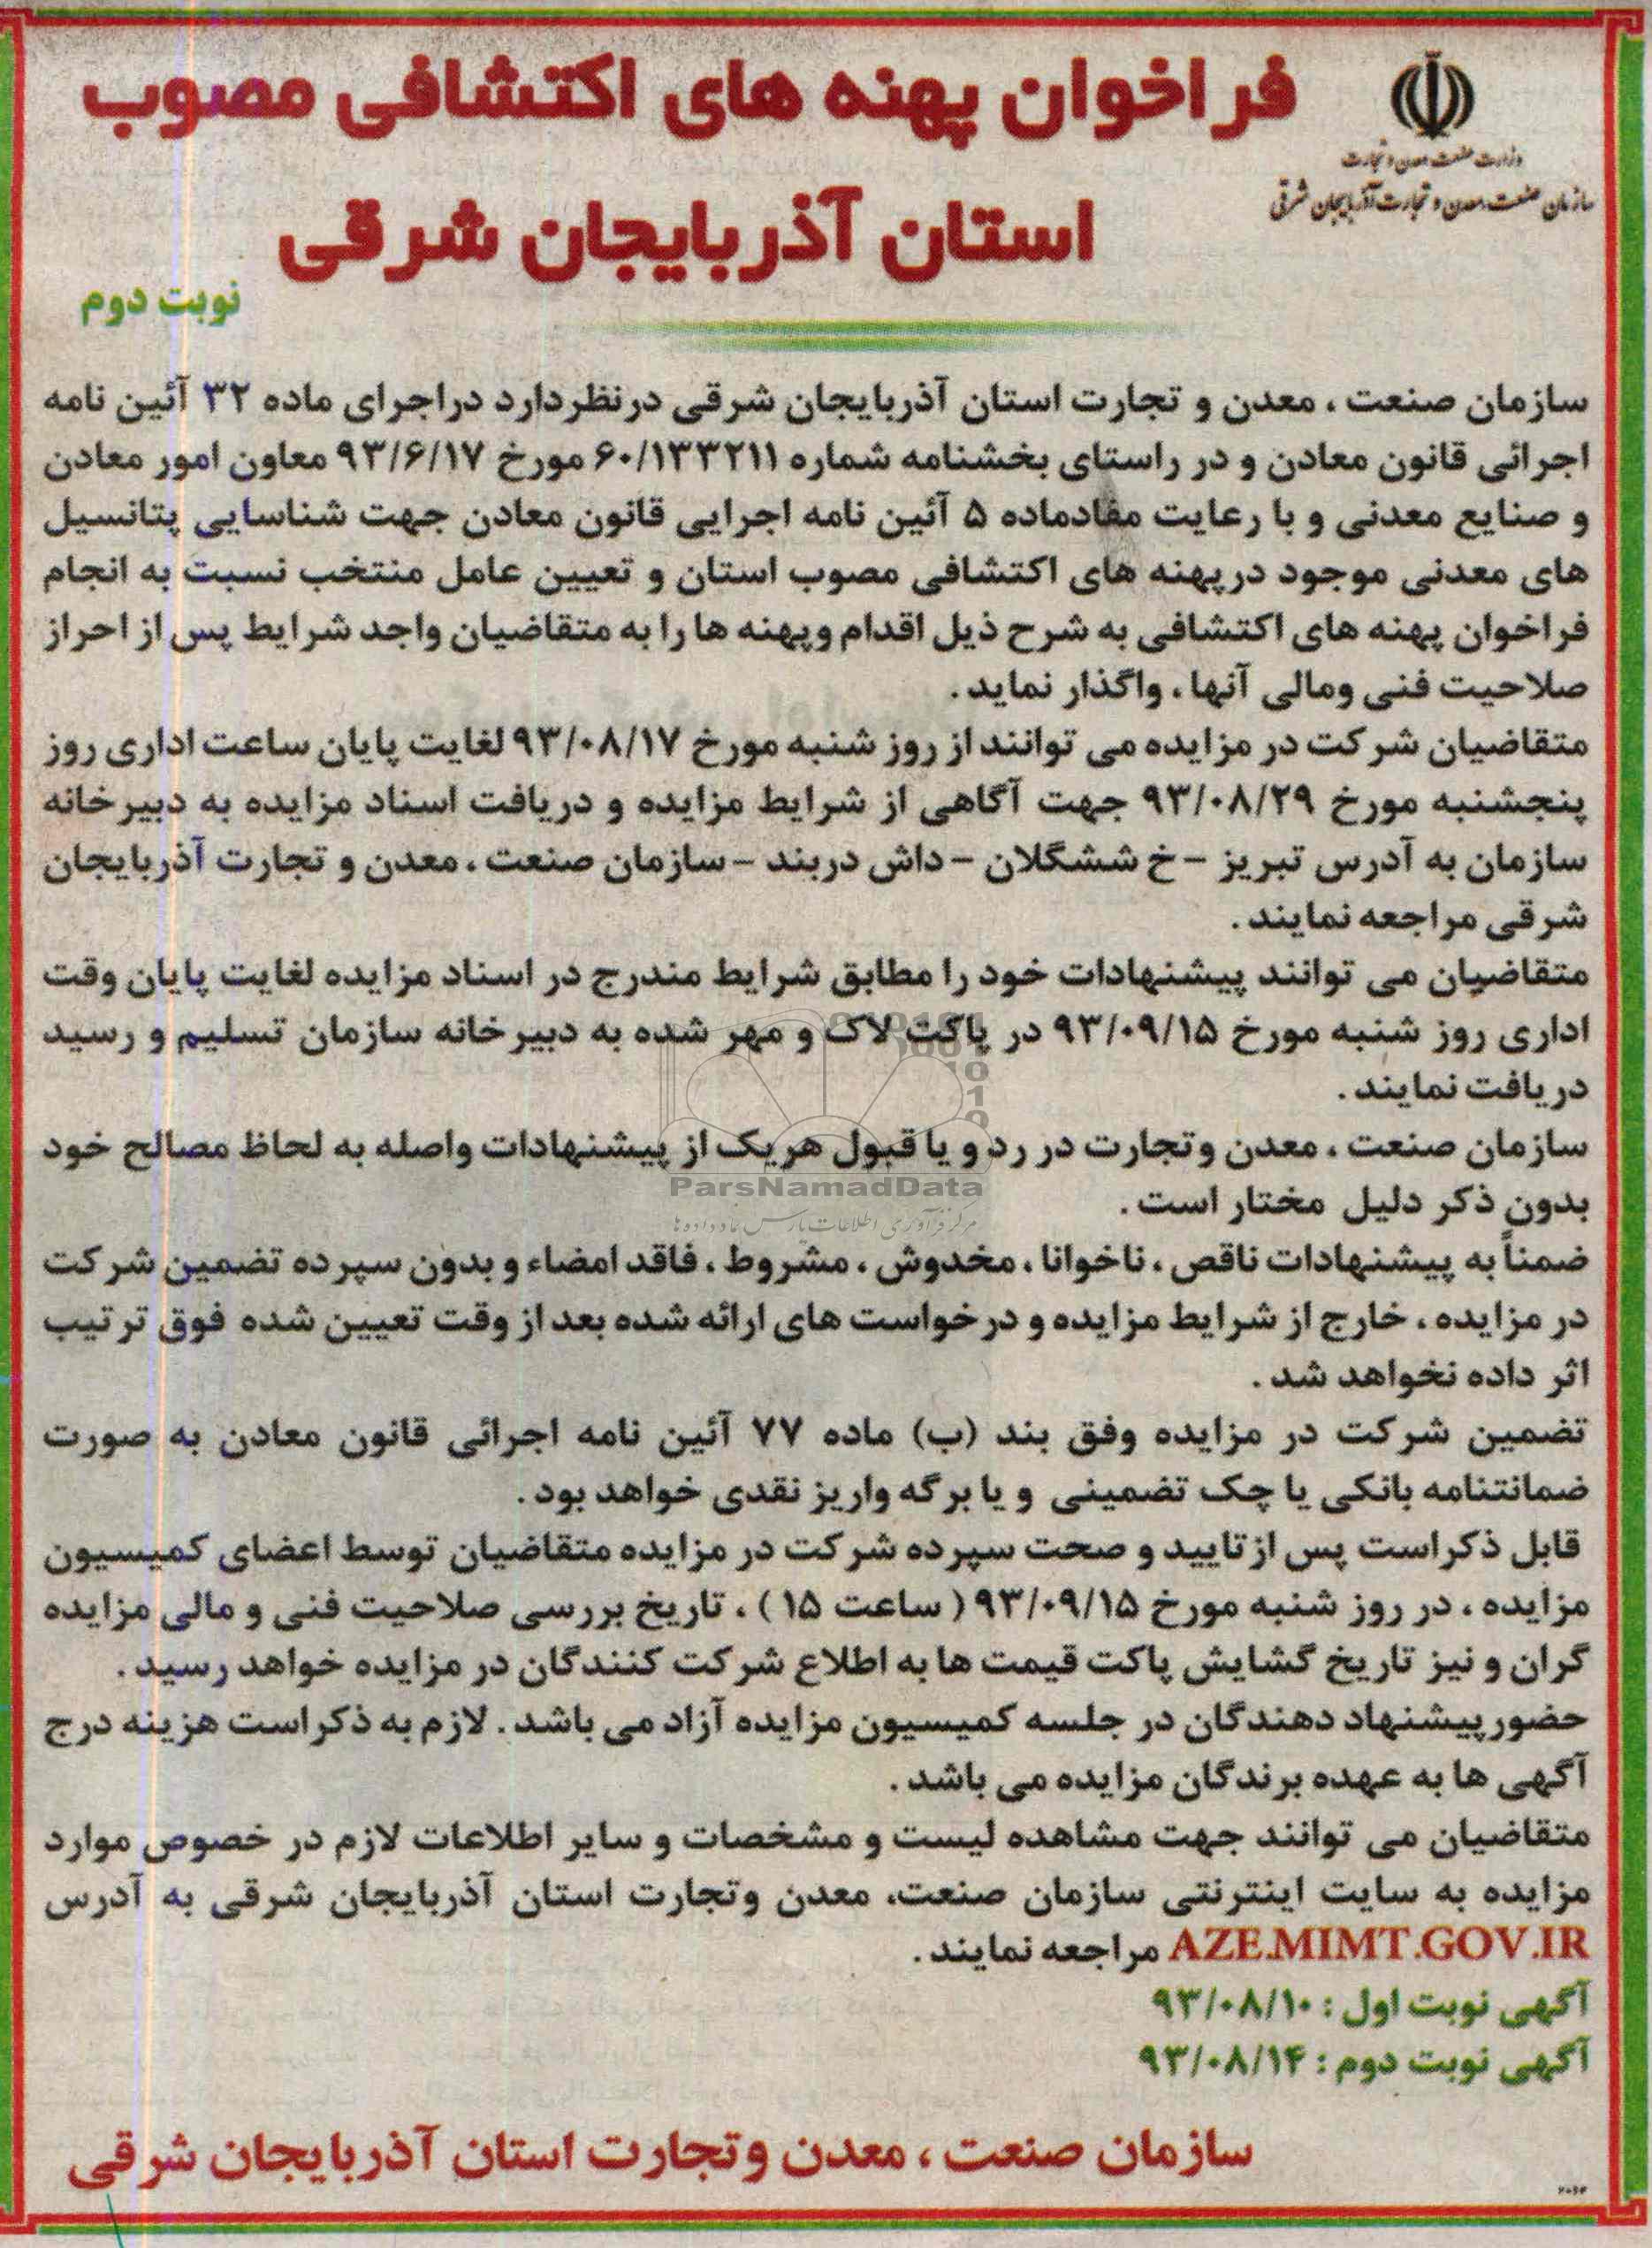 وزارت صنعت معدن و تجارت
سازمان صنعت، معدن و تجارت آذربایجان شرقی
فراخوان پهنه های اکتشافی مصوب
استان آذربایجان شرقی
نوبت دوم
سازمان صنعت ، معدن و تجارت استان آذربایجان شرقی درنظردارد دراجرای ماده ۳۲ آئین نامه
اجرائی قانون معادن و در راستای بخشنامه شماره ۶۰/۱۳۳۲۱۱ مورخ ۹۳/۶/۱۷ معاون امور معادن
و صنایع معدنی و با رعایت مفادماده ۵ آئین نامه اجرایی قانون معادن جهت شناسایی پتانسیل
های معدنی موجود درپهنه های اکتشافی مصوب استان و تعیین عامل منتخب نسبت به انجام
فراخوان پهنه های اکتشافی به شرح ذیل اقدام وپهنه ها را به متقاضیان واجد شرایط پس از احراز
صلاحیت فنی ومالی آنها ، واگذار نماید .
متقاضیان شرکت در مزایده می توانند از روز شنبه مورخ ۹۳/۰۸/۱۷ لغایت پایان ساعت اداری روز
پنجشنبه مورخ ۹۳/۰۸/۲۹ جهت آگاهی از شرایط مزایده و دریافت اسناد مزایده به دبیرخانه
سازمان به آدرس تبریز – خ ششگلان – داش دربند – سازمان صنعت ، معدن و تجارت آذربایجان
شرقی مراجعه نمایند .
متقاضیان می توانند پیشنهادات خود را مطابق شرایط مندرج در اسناد مزایده لغایت پایان وقت
اداری روز شنبه مورخ ۹۳/۰۹/۱۵ در پاکت لاک و مهر شده به دبیرخانه سازمان تسلیم و رسید
دریافت نمایند .
سازمان صنعت ، معدن وتجارت در رد و یا قبول هریک از پیشنهادات واصله به لحاظ مصالح خود
ParsNamadData
بدون ذکر دلیل مختار است .
مرکز فرآوری اطلاعات پارس نماد داده ها
ضمناً به پیشنهادات ناقص ، ناخوانا ، مخدوش ، مشروط ، فاقد امضاء و بدون سپرده تضمین شرکت
در مزایده ، خارج از شرایط مزایده و درخواست های ارائه شده بعد از وقت تعیین شده فوق ترتیب
اثر داده نخواهد شد .
تضمین شرکت در مزایده وفق بند (ب) ماده ۷۷ آئین نامه اجرائی قانون معادن به صورت
ضمانتنامه بانکی یا چک تضمینی و یا برگه واریز نقدی خواهد بود .
قابل ذکراست پس ازتایید و صحت سپرده شرکت در مزایده متقاضیان توسط اعضای کمیسیون
مزایده ، در روز شنبه مورخ ۹۳/۰۹/۱۵ ( ساعت ۱۵ ) ، تاریخ بررسی صلاحیت فنی و مالی مزایده
گران و نیز تاریخ گشایش پاکت قیمت ها به اطلاع شرکت کنندگان در مزایده خواهد رسید .
حضورپیشنهاد دهندگان در جلسه کمیسیون مزایده آزاد می باشد . لازم به ذکراست هزینه درج
آگهی ها به عهده برندگان مزایده می باشد .
متقاضیان می توانند جهت مشاهده لیست و مشخصات و سایر اطلاعات لازم در خصوص موارد
مزایده به سایت اینترنتی سازمان صنعت، معدن وتجارت استان آذربایجان شرقی به آدرس
AZE.MIMT.GOV.IR مراجعه نمایند .
آگهی نوبت اول : ۹۳/۰۸/۱۰
آگهی نوبت دوم : ۹۳/۰۸/۱۴
سازمان صنعت ، معدن وتجارت استان آذربایجان شرقی